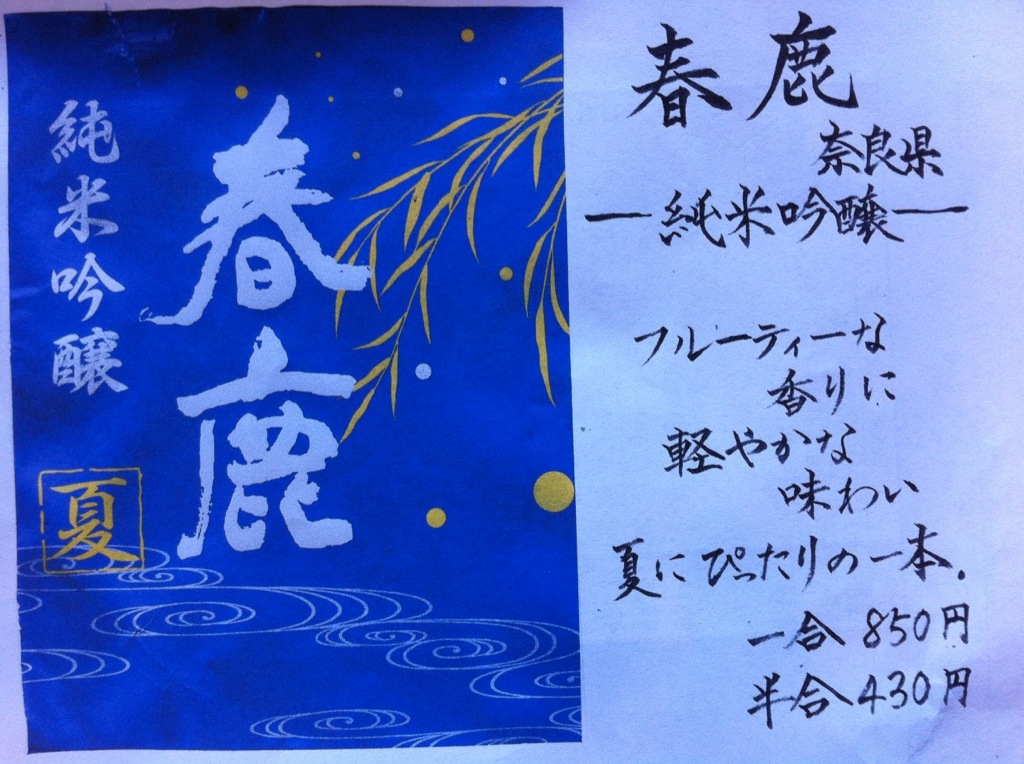 春鹿
純米吟醸
夏
春鹿
奈良県
ー純米吟醸ー
フルーティーな
香りに
軽やかな
味わい
夏にぴったりの一本.
一合 850円
半合 430円